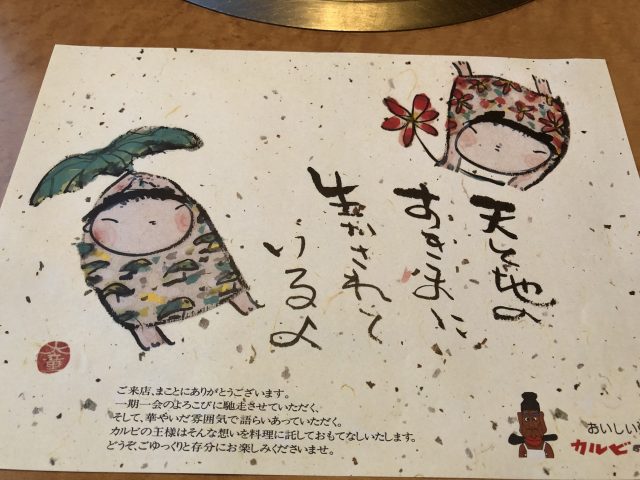 天と地の
おきまに
生かされて
いるよ
ご来店、まことにありがとうございます。
一期一会のよろこびに馳走させていただく、
そして、華やいだ雰囲気で語らいあっていただく。
カルビの王様はそんな想いを料理に託しておもてなしいたします。
どうぞ、ごゆっくりと存分にお楽しみくださいませ。
おいしい
カルビ